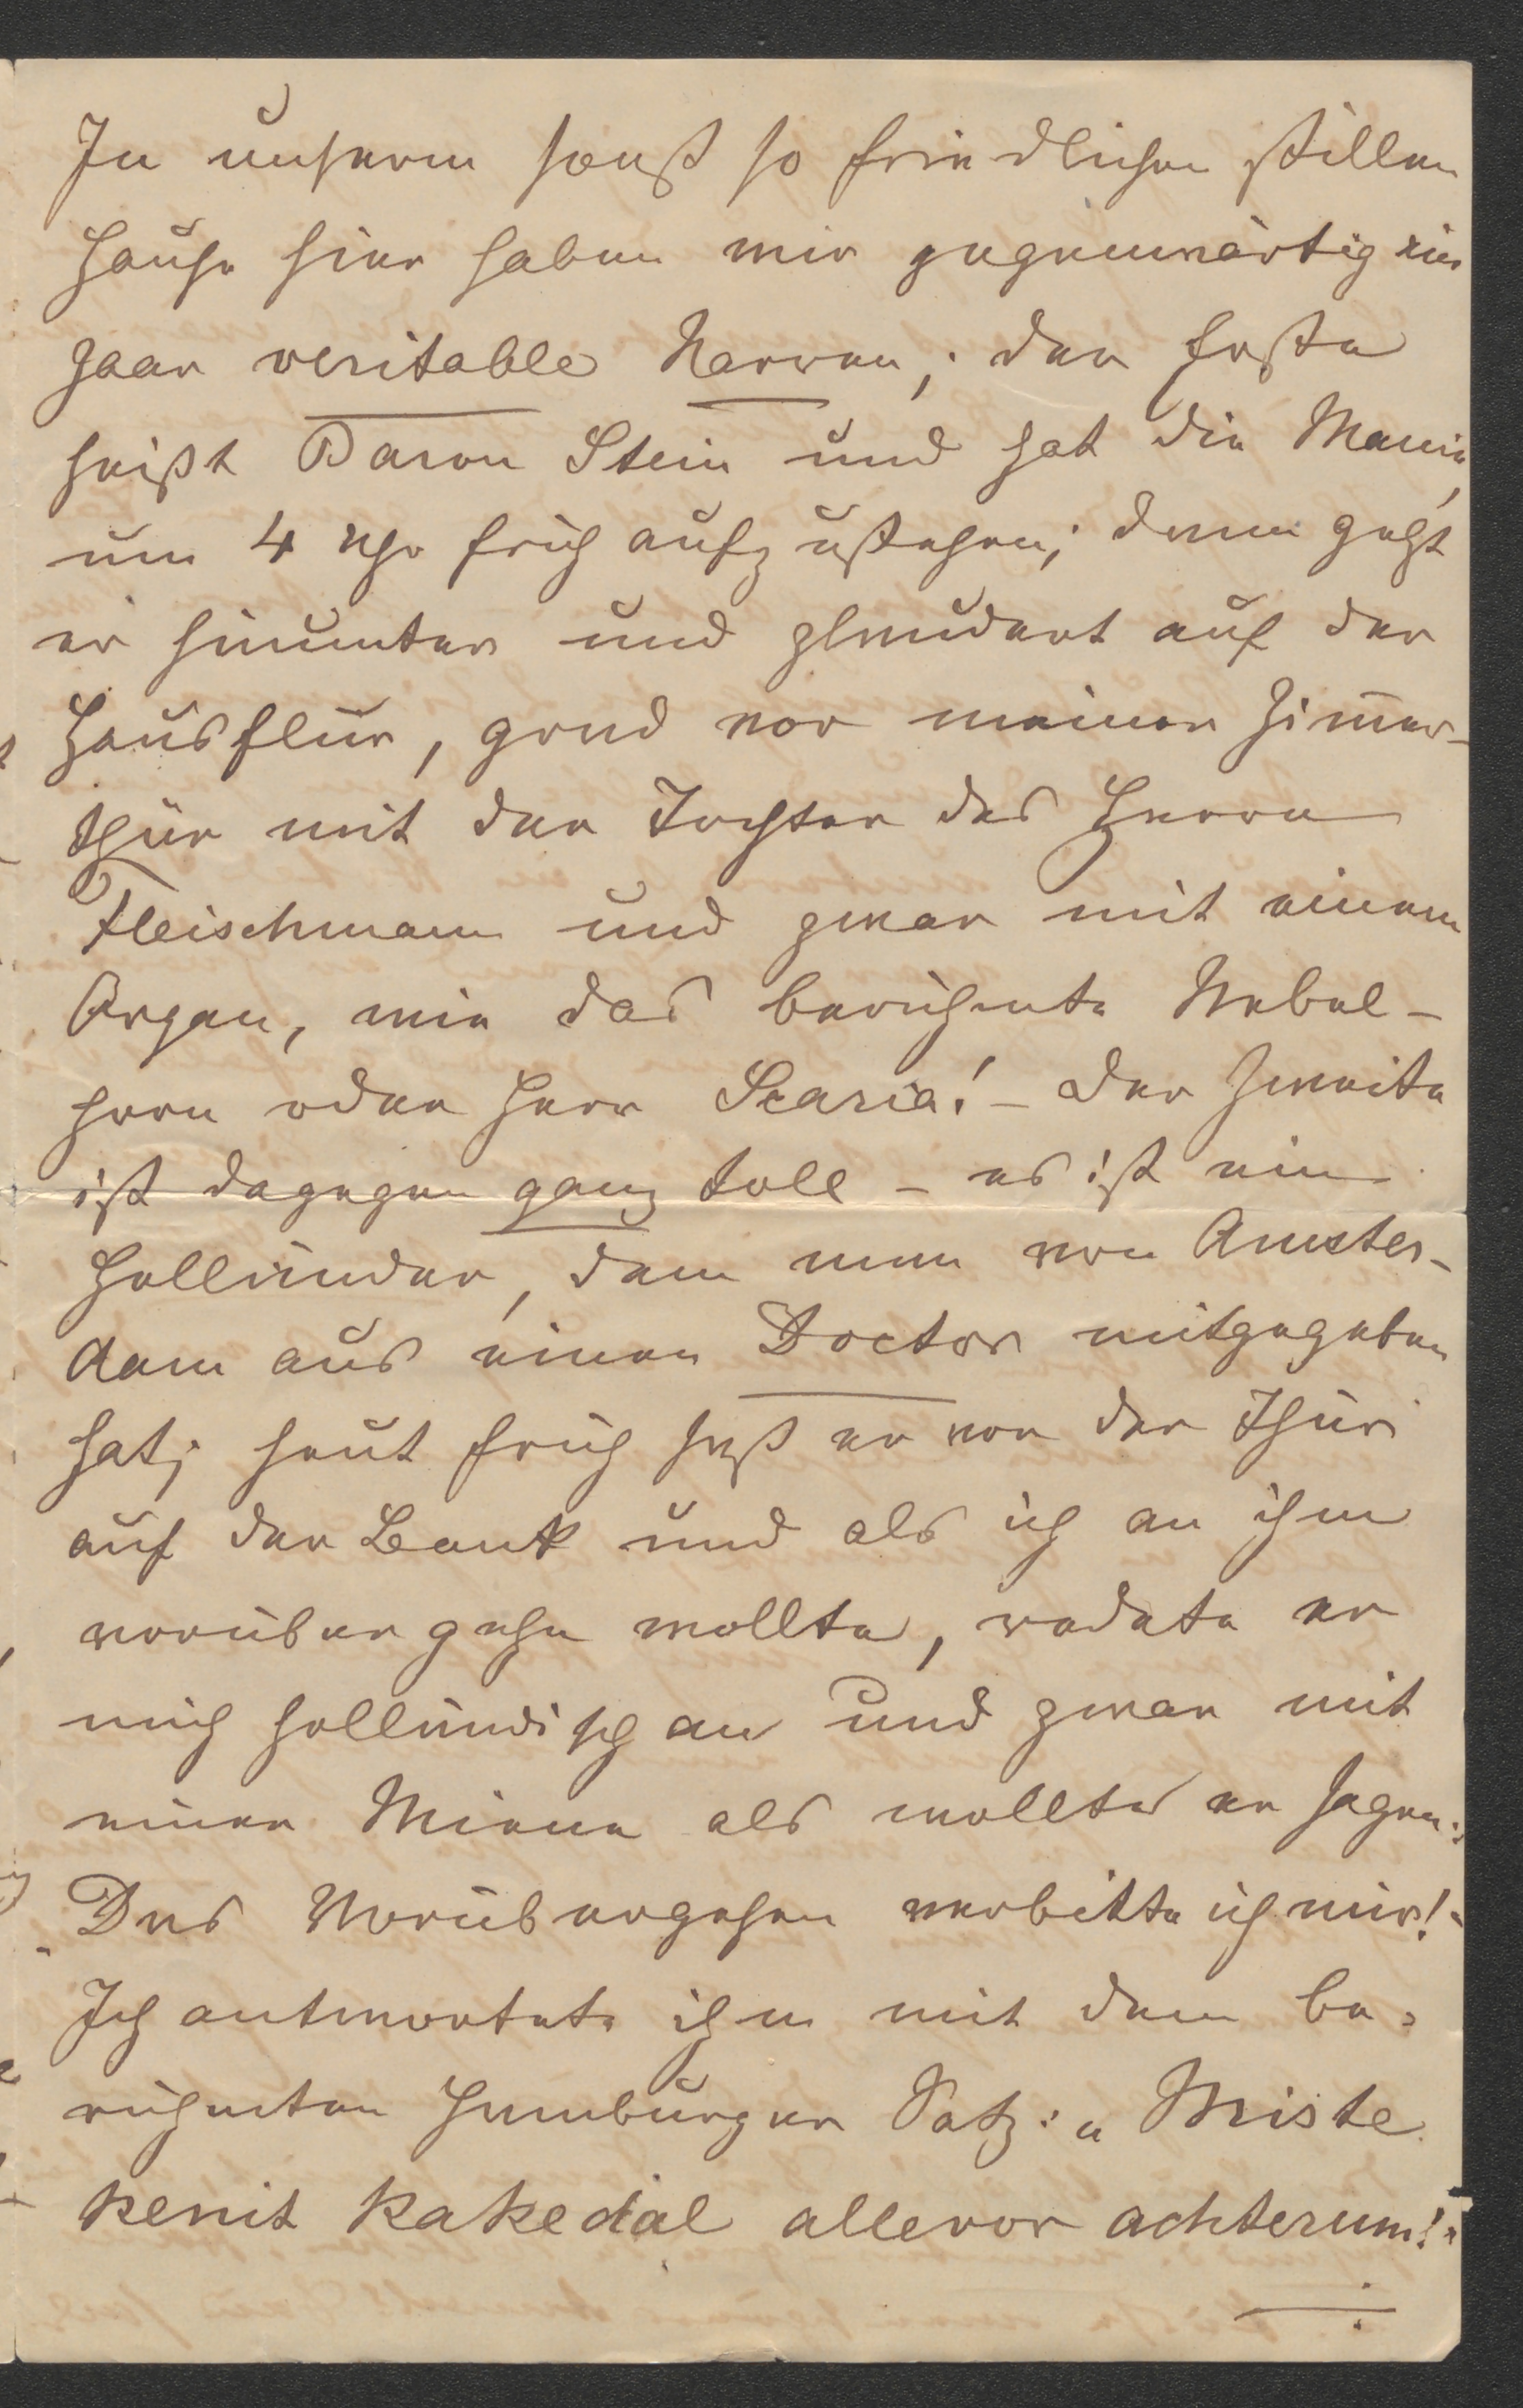 In unserm sonst so friedlichen stillen
Hause hier haben wir gegenwärtig ein
paar veritable Narren; der Erste
heißt Baron Stein und hat die Manie,
um 4 Uhr früh aufzustehen; dann geht
er hinunter und plaudert auf der
Hausflur, grad vor meiner Zimmer-
thür mit der Tochter des Herrn
Fleischmann und zwar mit einem
Organ, wie das berühmte Nebel-
horn oder Herr Scaria! – Der Zweite
ist dagegen ganz toll – es ist ein
Holländer, dem man von Amster-
dam aus einen Doctor mitgegeben
hat; heut früh saß er vor der Thür
auf der Bank und als ich an ihm
vorübergehn wollte, redete er
mich holländisch an und zwar mit
einer Miene als wollte er sagen:
„Das Vorübergehen verbitte ich mir!"
Ich antwortete ihm mit dem be-
rühmten Hamburger Satz: „Miste
kenit kakedal allevor achterum!"